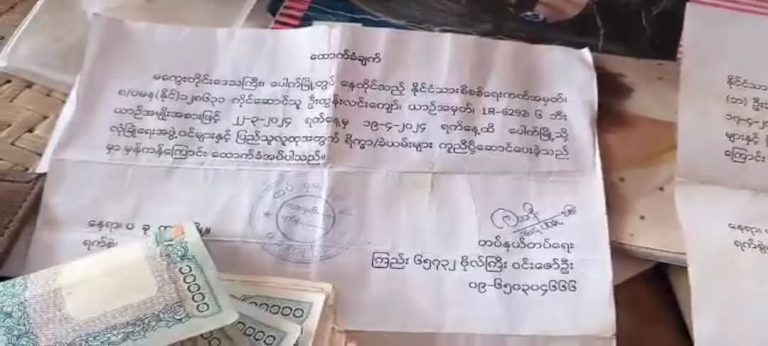 ထောက်ခံချက်
မကွေးတိုင်းဒေသကြီး၊ ပေါက်မြို့တွင် နေထိုင်သည့် နိုင်ငံသားစိစစ်ရေးကတ်အမှတ်၊
၈/ပမန(နိုင်)၁၂၈၆၃၁ ကိုင်ဆောင်သူ ဦးထွန်းလင်းကျော်၊ ယာဉ်အမှတ်၊ 1R-6292၊ ၆ ဘီး
ယာဉ်အမျိုးအစားဖြင့် ၂၂-၃-၂၀၂၄ ရက်နေ့မှ ၁၉-၄-၂၀၂၄ ရက်နေ့ထိ ပေါက်မြို့သို့
လုံခြုံရေးအဖွဲ့ဝင်များနှင့် ပြည်သူလူထုအတွက် ရိက္ခာ/ခဲယမ်းများ ကူညီပို့ဆောင်ပေးခဲ့သည်
မှာ မှန်ကန်ကြောင်း ထောက်ခံအပ်ပါသည်။
နေရာ၊ ပ ခု
ရက်စွဲ၊
တပ်နယ်တပ်ရေး
ကြည်း ၆၅၇၃၂ ဗိုလ်ကြီး ဝင်းဇော်ဦး
၀၉-၆၅၀၃၀၄၆၆၆
နိုင်ငံသား
(ဘ)
ယာဉ်
၁၇-၄-၂၀
များနှင့်
ကြောင်း
နေရာ၊
ရက်စွဲ၊
၁၀၀၀၀
၁၀၀၀၀